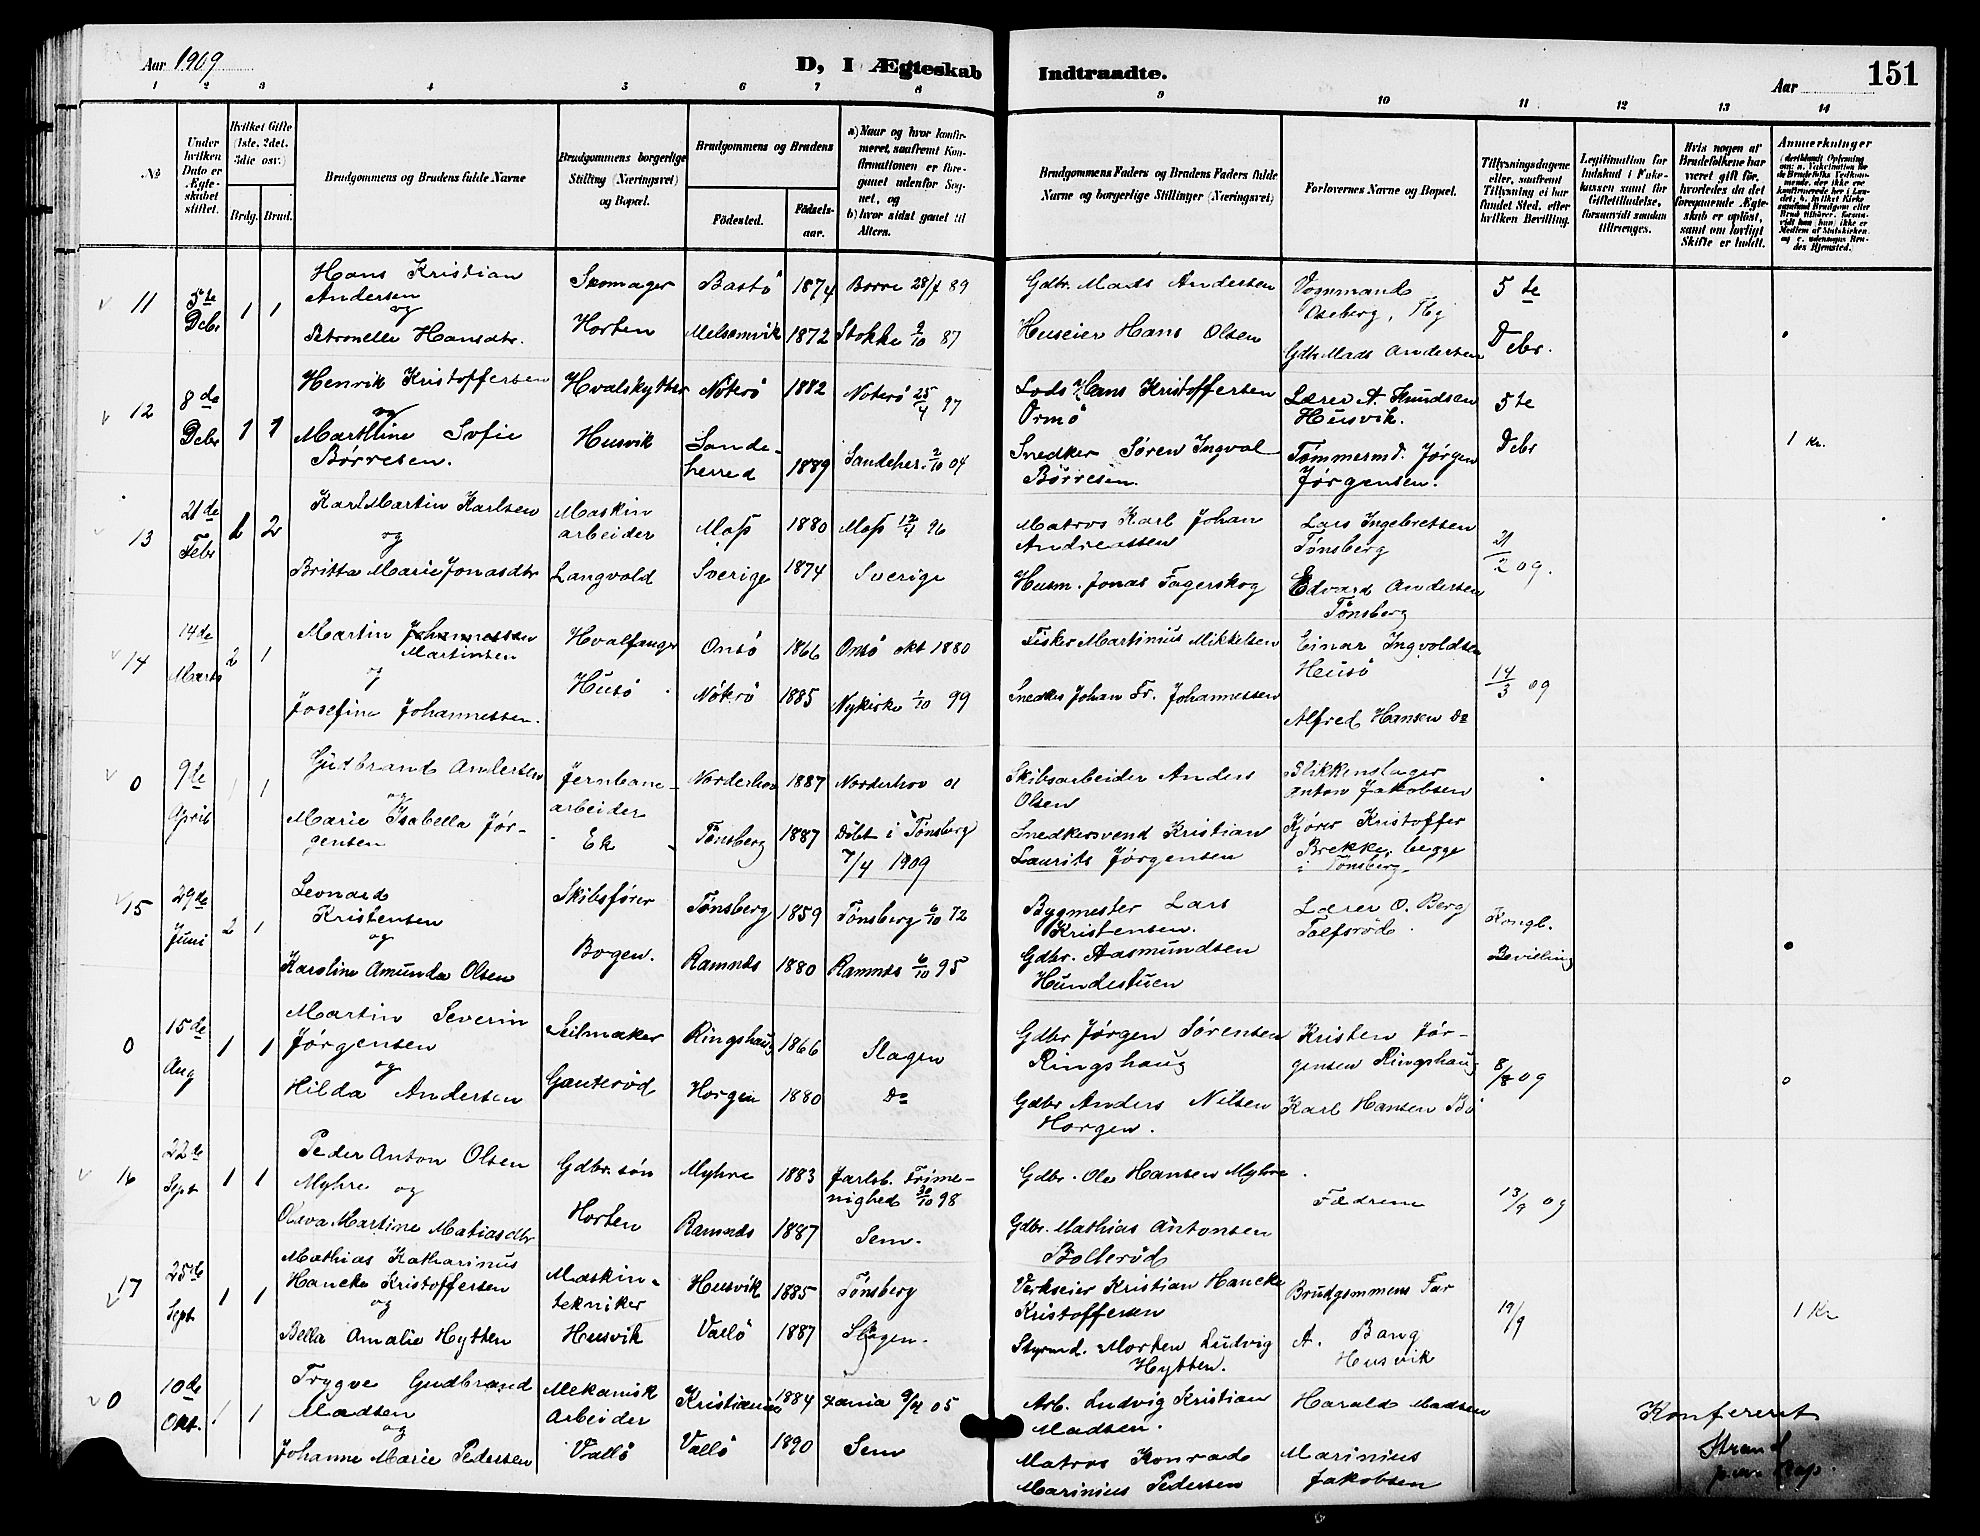 Aar 1909
D, I Ægteskab Indtraadte.
Aar
151
1 2 3 4 5 6 7 8 9 10 11 12 13 14
№
Under hvilken Dato er Ægteskabet stiftet.
Hvilket Gifte (1ste, 2det, 3die osv.)
Brdg. Brud.
Brudgommens og Brudens fulde Navne
Brudgommens borgerlige Stilling (Næringsvei) og Bopæl.
Brudgommens og Brudens
Fødested.
Fødselsaar.
a) Naar og hvor konfirmeret, saafremt Konfirmationen er foregaaet udenfor Sognet, og
b) hvor sidst gaaet til Alters.
Brudgommens Faders og Brudens Faders fulde Navne og borgerlige Stillinger (Næringsvei)
Forlovernes Navne og Bopæl.
Tillysningsdagene eller, saafremt Tillysning ei har fundet Sted, efter hvilken Bevilling.
Legitimation for Indskud i Enkekassen samt for Giftetilladelse, forsaavidt saadan tiltrænges.
Hvis nogen af Brudefolkene har været gift før, hvorledes da det foregaaende Ægteskab er opløst, samt om lovligt Skifte er holdt.
Anmærkninger
11 5te Debr 1 1
Hans Kristian Andersen og Petronelle Hansdtr.
Skomager Horten
Bastö 1874 Borre 28/7 89
Melsomvik 1872 Stokke 2/10 87
Gdbr. Mads Andersen
Huseier Hans Olsen
Oseberg, Tbg
Gdbr Mads Andersen
5te Debr.
12 8de Debr 1 1
Henrik Kristoffersen og Marthine Sofie Börresen.
Hvalskytter Husvik
Nöterö 1882 Noterö 25/4 97
Sandeherred 1889 Sandeher. 2/10 04
Lods Hans Kristoffersen Ormö
Snedker Søren Ingval Börresen.
Lærer A. Knudsen Husvik.
Tømmermd. Jørgen Jørgensen.
5te Debr
1 Kr.
13 21de Febr 1 2
Karl Martin Karlsen og Britta Marie Jonasdtr
Maskinarbeider Langvold
Moss 1880 Moss 12/4 96
Sverige 1874 Sverige
Matros Karl Johan Andreassen
Husm. Jonas Fagerskog
Lars Ingebretsen Tønsberg
Edvard Andersen Tønsberg
21/2 09.
14 14de Marts 2 1
Martin Johannessen Martinsen og Josefine Johannessen.
Hvalfanger Husö
Onsö 1866 Onsö okt 1880
Nöterö 1885 Nykirke 1/10 99
Fisker Martinius Mikkelsen
Snedker Johan Fr. Johannessen
Einar Ingvoldsen Husö
Alfred Hansen Do
14/3 09
0 9de April 1 1
Gudbrand Andersen og Marie Isabella Jørgensen
Jernbanearbeider Ek
Norderhov 1887 Norderhov 01
Tønsberg 1887 Döbt i Tønsberg 7/4 1909
Skibsarbeider Anders Olsen
Snedkersvend Kristian Laurits Jørgensen
Blikkenslager Anton Jakobsen
Kjører Kristoffer Brekke, begge i Tønsberg.
15 29de Juni 2 1
Leonard Kristensen og Karoline Amunda Olsen
Skibsfører Bogen.
Tønsberg 1859 Tønsberg 6/10 72
Ramnes 1880 Ramnes 6/10 95
Bygmester Lars Kristensen.
Gdbr. Aasmundsen Hundestuen
Lærer O. Berg Tolfsrød.
Kongl. Bevilling
0 15de Aug 1 1
Martin Severin Jørgensen og Hilda Andersen
Seilmaker Gauterød
Ringshaug 1866 Slagen
Horgen 1880 Do
Gdbr Jørgen Sørensen Ringshaug
Gdbr Anders Nilsen Horgen.
Kristen Jørgensen Ringshaug
Karl Hansen Bö
8/8 09
0
16 22de Sept 1 1
Peder Anton Olsen Myhre og Olava Martine Matiasdtr
Gdbr. søn Horten
Myhre 1883 Jarlsb. Frimenighed 30/10 98
Ramnes 1887 Sem.
Gdbr. Ole Hansen Myhre.
Gdbr. Mathias Antonsen Bollerød
Fædrene
13/9 09
17 25de Sept 1 1
Mathias Katharinus Hancke Kristoffersen og Bella Amalie Hytten
Maskintekniker Husvik
Husvik 1885 Tønsberg
Vallö 1887 Slagen.
Verkseier Kristian Hancke Kristoffersen
Styrmd. Morten Ludvig Hytten.
Brudgommens Far
A. Bang Husvik
19/9
1 Kr
0 10de Okt. 1 1
Trygve Gudbrand Madsen og Johanne Marie Pedersen
Mekanisk Arbeider Vallö
Kristiania 1884 Xania 05
Vallö 1890 Sem
Arb. Ludvig Kristian Madsen.
Matros Konrad Marinius Pedersen
Harald Madsen
Marinius Jakobsen
Konfereret
Strand